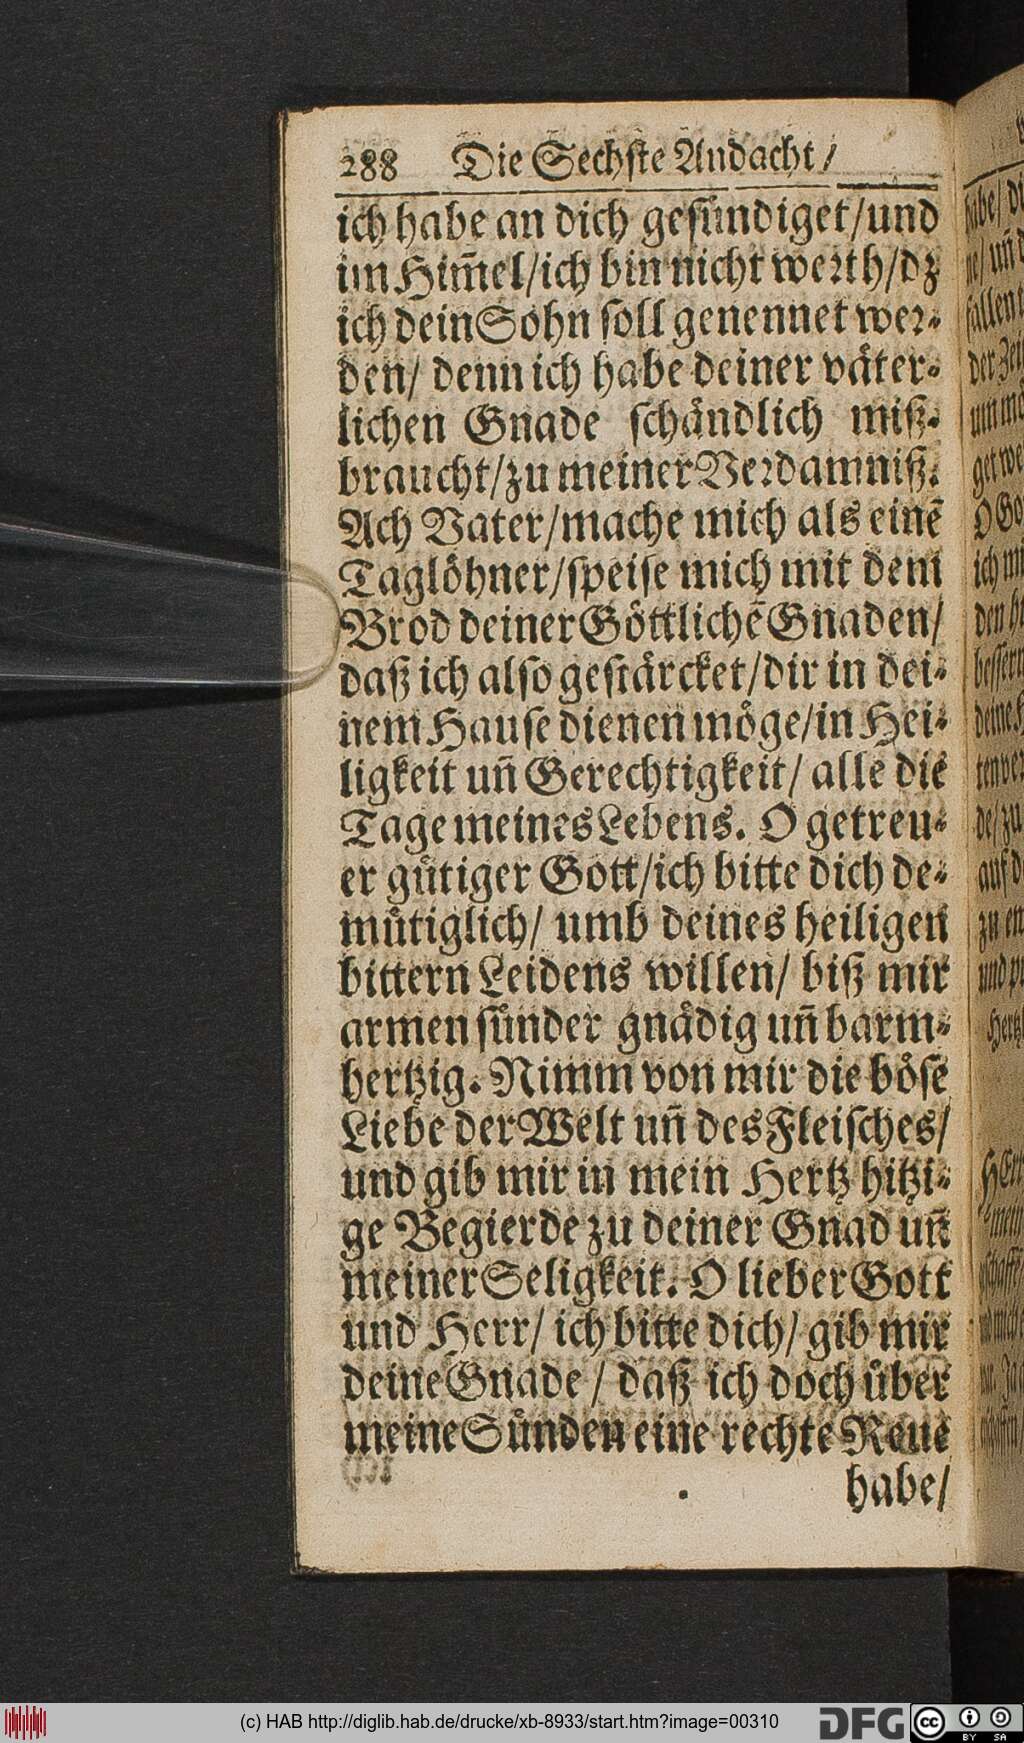 288 Die Sechste Andacht /
ich habe an dich gesündiget/und
im Him̄el/ich bin nicht werth/dz
ich dein Sohn soll genennet wer-
den/ denn ich habe deiner väter-
lichen Gnade schändlich miß-
braucht/zu meiner Verdamniß.
Ach Vater/mache mich als einē
Taglöhner/speise mich mit dem
Brod deiner Göttlichē Gnaden/
daß ich also gestärcket/dir in dei-
nem Hause dienen möge/in Hei-
ligkeit uñ Gerechtigkeit/ alle die
Tage meines Lebens. O getreu-
er gütiger Gott/ich bitte dich de-
mütiglich/ umb deines heiligen
bittern Leidens willen/ biß mir
armen sünder gnädig uñ barm-
hertzig. Nimm von mir die böse
Liebe der Welt uñ des Fleisches/
und gib mir in mein Hertz hitzi-
ge Begierde zu deiner Gnad uñ
meiner Seligkeit. O lieber Gott
und Herr/ ich bitte dich/ gib mir
deine Gnade / daß ich doch über
meine Sünden eine rechte Reue
habe/
(c) HAB http://diglib.hab.de/drucke/xb-8933/start.htm?image=00310
DFG
cc BY SA